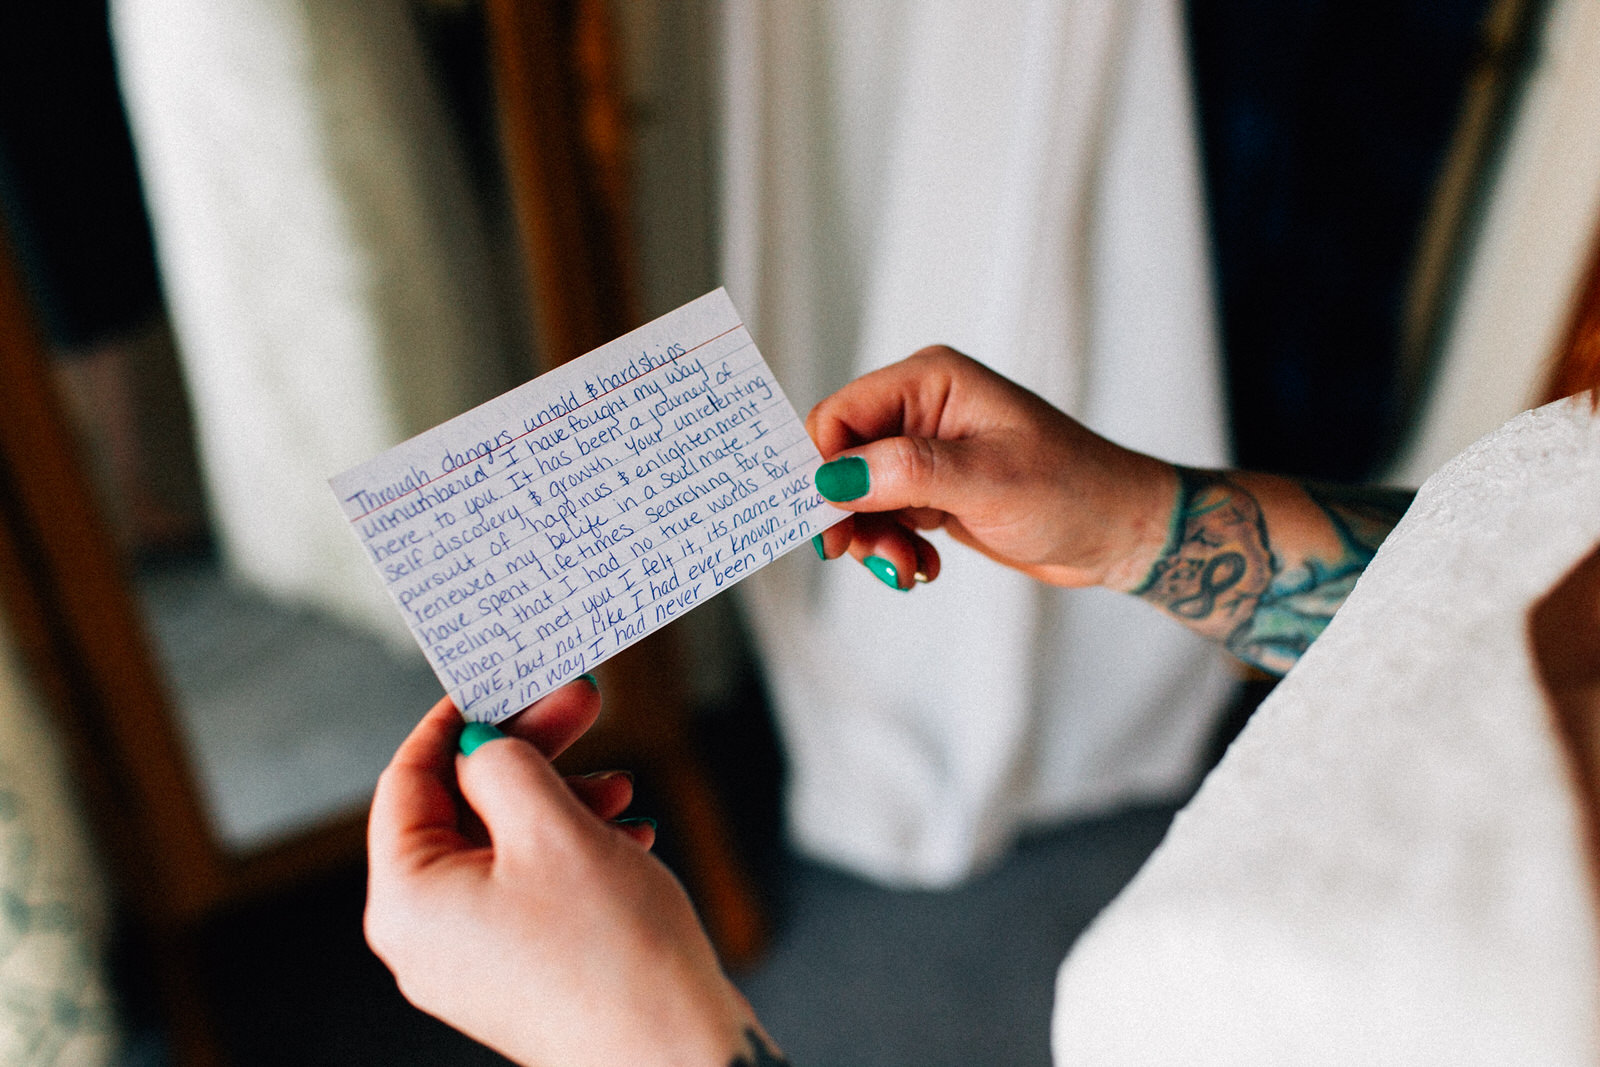 Through dangers untold & hardships
unnumbered I have fought my way
here, to you. It has been a journey of
self discovery & growth. Your unrelenting
pursuit of happines & enlightenment
renewed my belife in a soulmate. I
have spent lifetimes searching for a
feeling that I had no true words for
When I met you I felt it, its name was
LOVE, but not like I had ever known. True
love in way I had never been given.